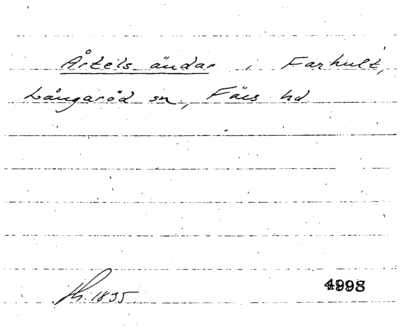 Årtels ändar i Farhult,
Långaröd sn, Färs hd
1835
4998